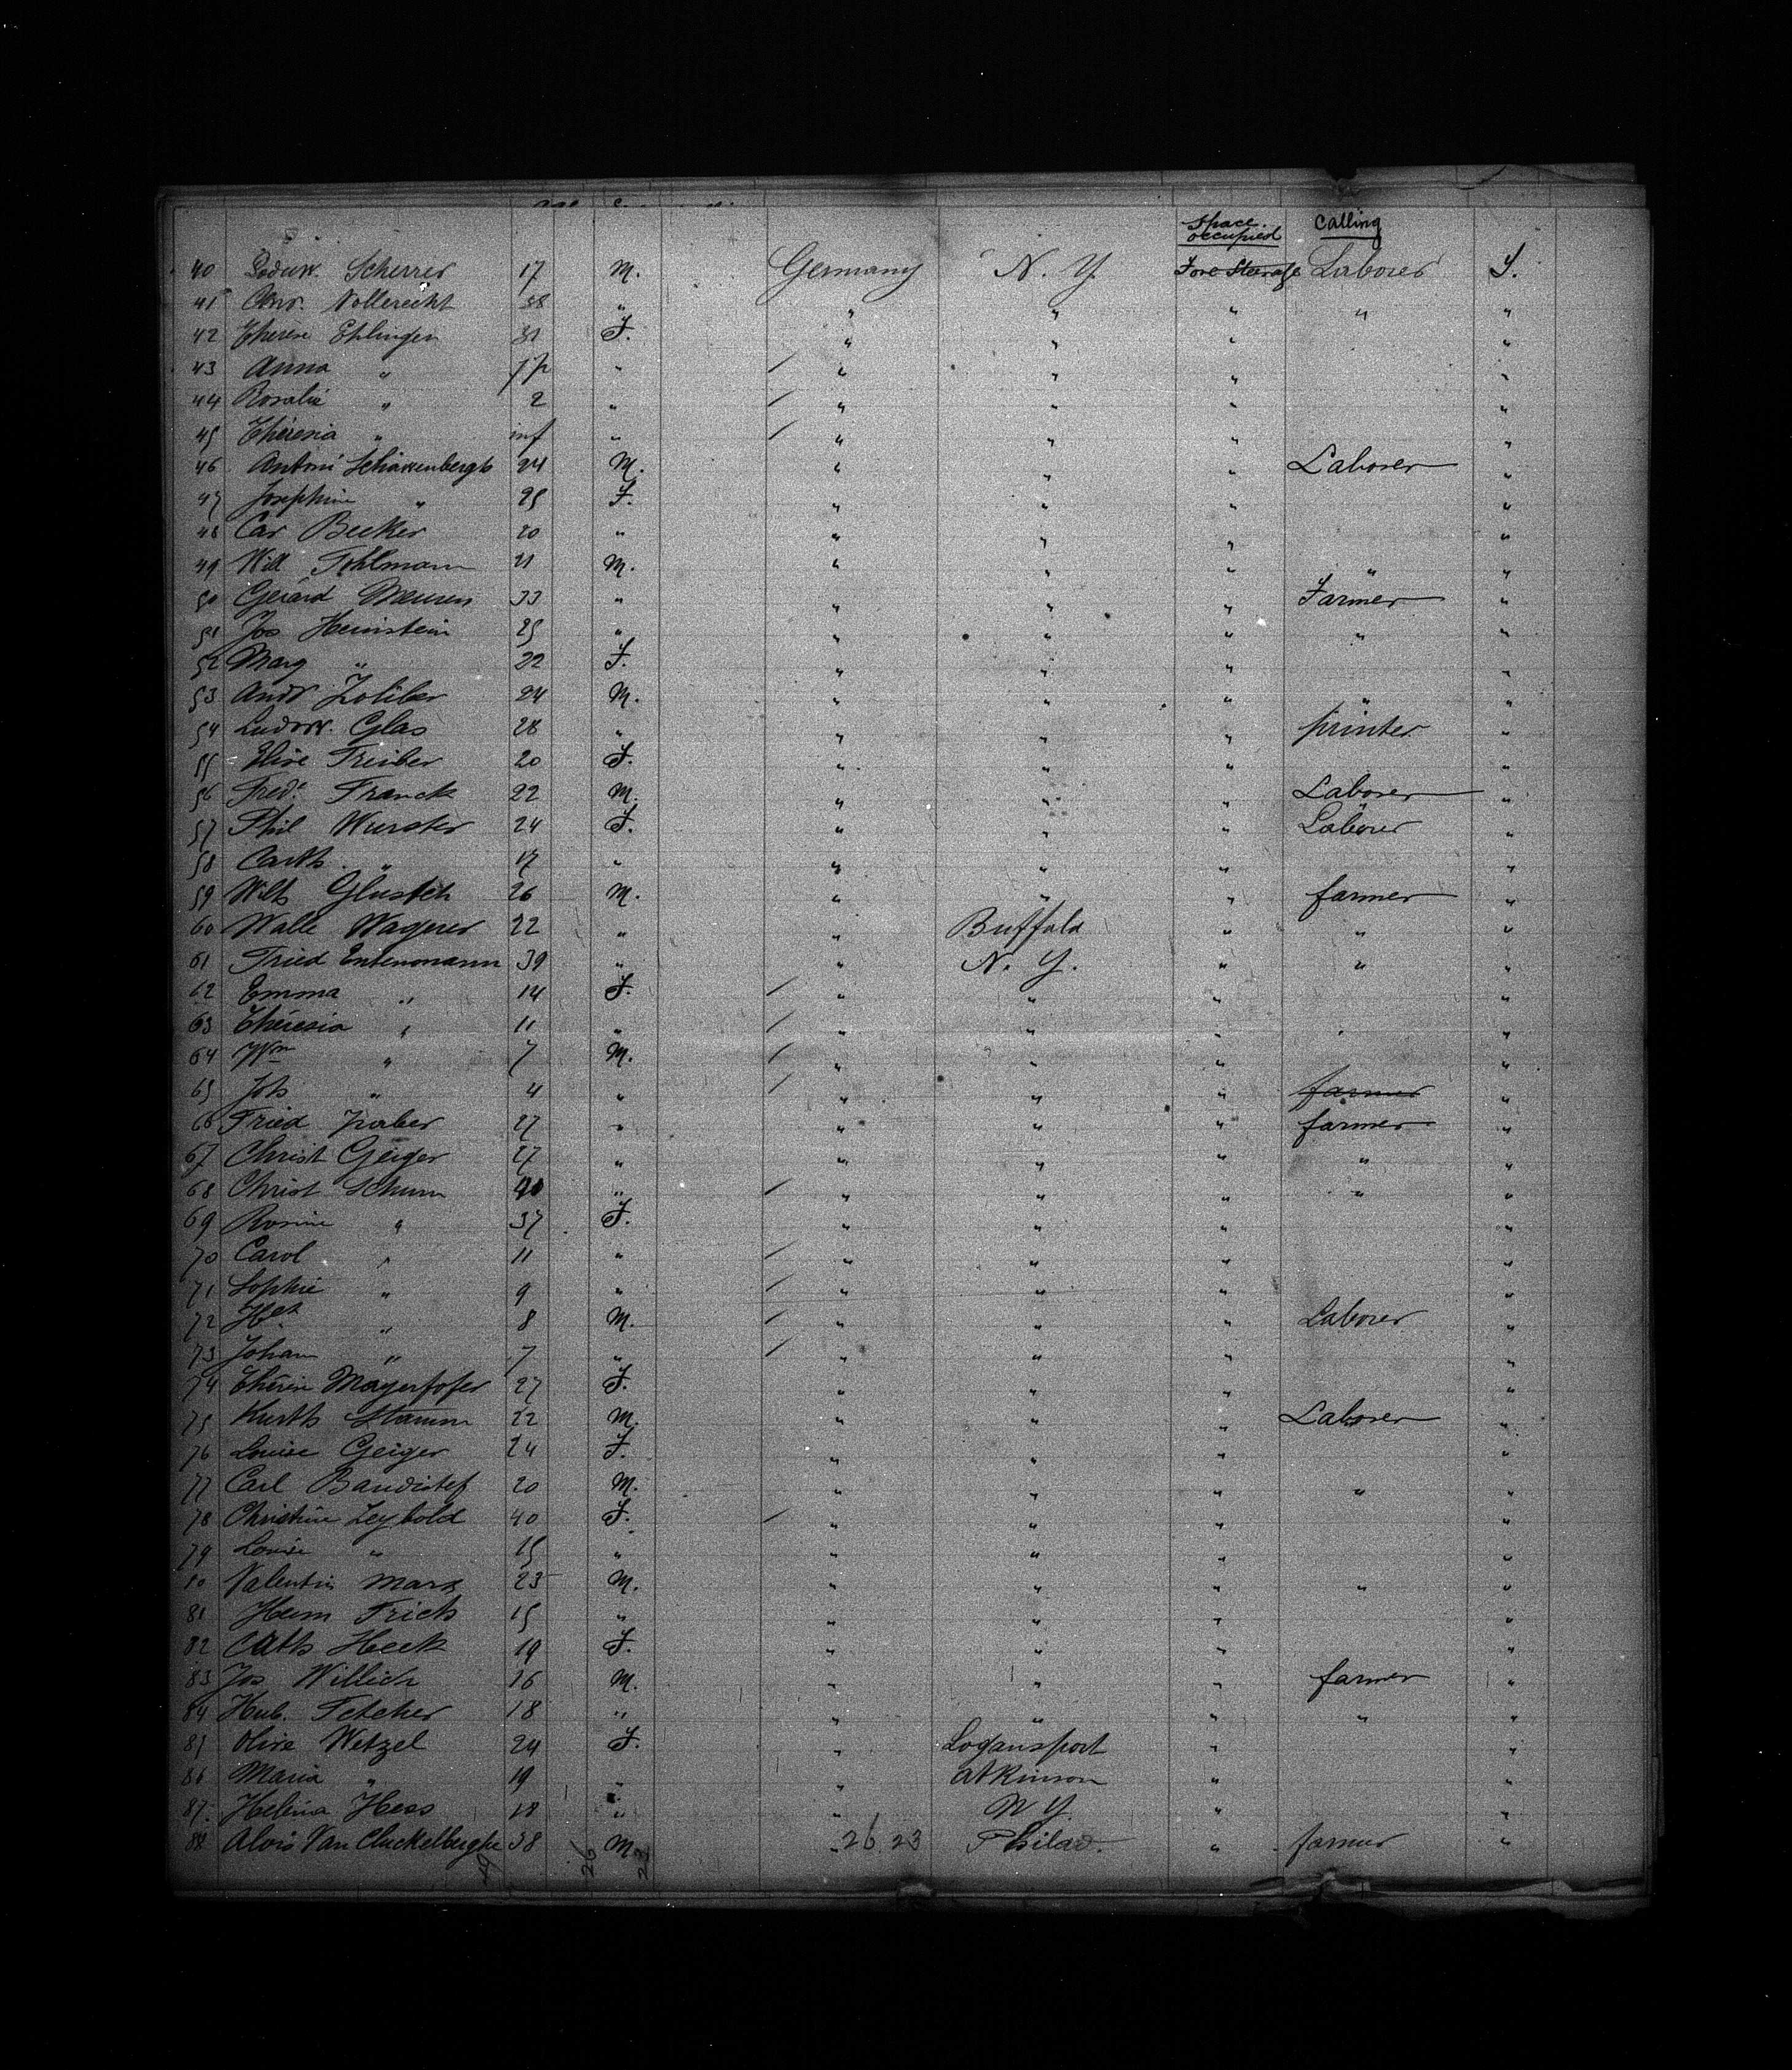 Space occupied Calling
40 Ludw. Scherrer 17 M. Germany N. Y. Fore Steerage Laborer S.
41 Nollerecht 38 " " " " " "
42 Therese Ehlinger 31 F. " " " "
43 Anna " " / " " " "
44 Rosalie " 2 " / " " " "
45 Theresia " inf " / " " " "
46 Antoni Scharrenbergh 24 M. " " " Laborer "
47 Josephine " 25 F. " " " "
48 Car Becker 20 " " " " "
49 Will Pohlmann 21 M. " " " " "
50 Gerard Meuren 33 " " " " Farmer "
51 Jos Heinstein 25 " " " " " "
52 Marg " 22 F. " " " "
53 Andr Zoliber 24 M. " " " " "
54 Ludow. Glas 28 " " " " printer "
55 Elise Treiber 20 F. " " " "
56 Fred. Franck 22 M. " " " Laborer "
57 Phil Wurster 24 F. " " " Laborer "
58 Cath " 17 " " " " "
59 Wilh Glustch 26 M. " " " farmer "
60 Walle Wagener 22 " " Buffalo " " "
61 Fried Entenmann 39 " " N. Y. " " "
62 Emma " 14 F. / " " " "
63 Theresia " 11 " / " " " "
64 Wm " 7 M. / " " " "
65 Joh " 4 " / " " " farmer "
66 Fried 27 " " " " farmer "
67 Christ Geiger 27 " " " " " "
68 Christ Schurr 40 " / " " " " "
69 Rosine " 37 F. " " " "
70 Carol " 11 " / " " " "
71 Sophie " 9 " / " " " "
72 " 8 M. / " " " Laborer "
73 Johan " 7 " / " " " "
74 Therese Mayerhofer 27 F. " " " "
75 Kurth Stamm 22 M. " " " Laborer "
76 Louise Geiger 24 F. " " " "
77 Carl Baudistel 20 M. " " " " "
78 Christine Leybold 40 F. / " " " "
79 Louise " 15 " " " " "
80 Valentin Marx 23 M. " " " " "
81 Herm Frich 15 " " " " "
82 Cath Heck 19 F. " " " "
83 Jos Willich 16 M. " " " farmer "
84 Hub. Fetcher 18 " " " " " "
85 Olive Wetzel 24 F. " Logansport " "
86 Maria " 19 " " Atkinson " "
87 Helena Hess 18 " " N Y. " "
88 Alois Van Cluckelberghe 38 M. " 26 23 Philad. " farmer "
49 26 23